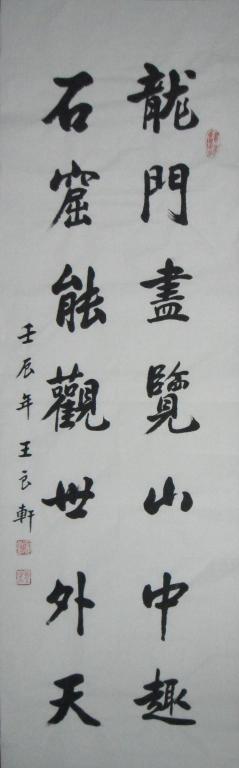 龍門盡覽山中趣
石窟能觀世外天
壬辰年王良軒